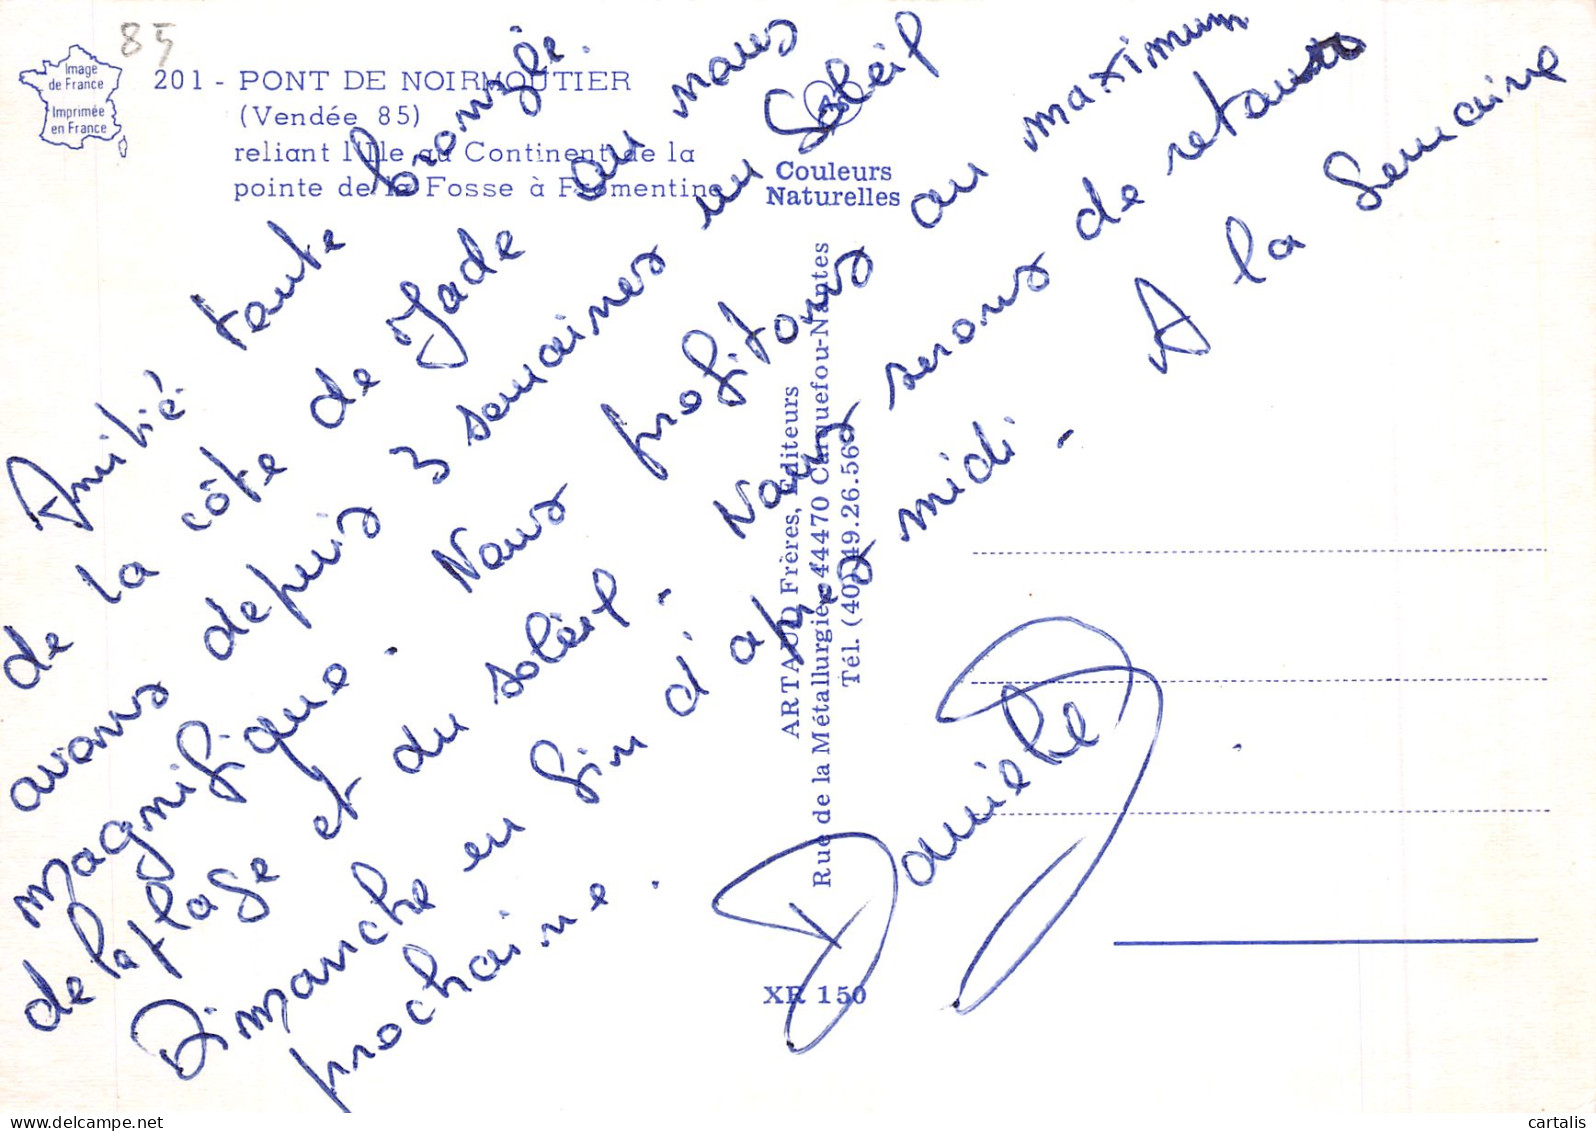 85
Image
de France
Imprimée
en France
201 - PONT DE NOIRMOUTIER
(Vendée 85)
reliant l'Ile au Continent de la
pointe de la Fosse à Fromentine
Couleurs
Naturelles
ARTAUD Frères, Editeurs
Rue de la Métallurgie, 44470 Carquefou-Nantes
Tél. (40) 49.26.56
XR 150
Amitié toute bronzée.
de la côte de Jade où nous
avons depuis 3 semaines un Soleil
magnifique. Nous profitons au maximum
de la plage et du soleil. Nous serons de retour
Dimanche en fin d'après midi - A la Semaine
prochaine.
Danièle
cartalis
www.delcampe.net